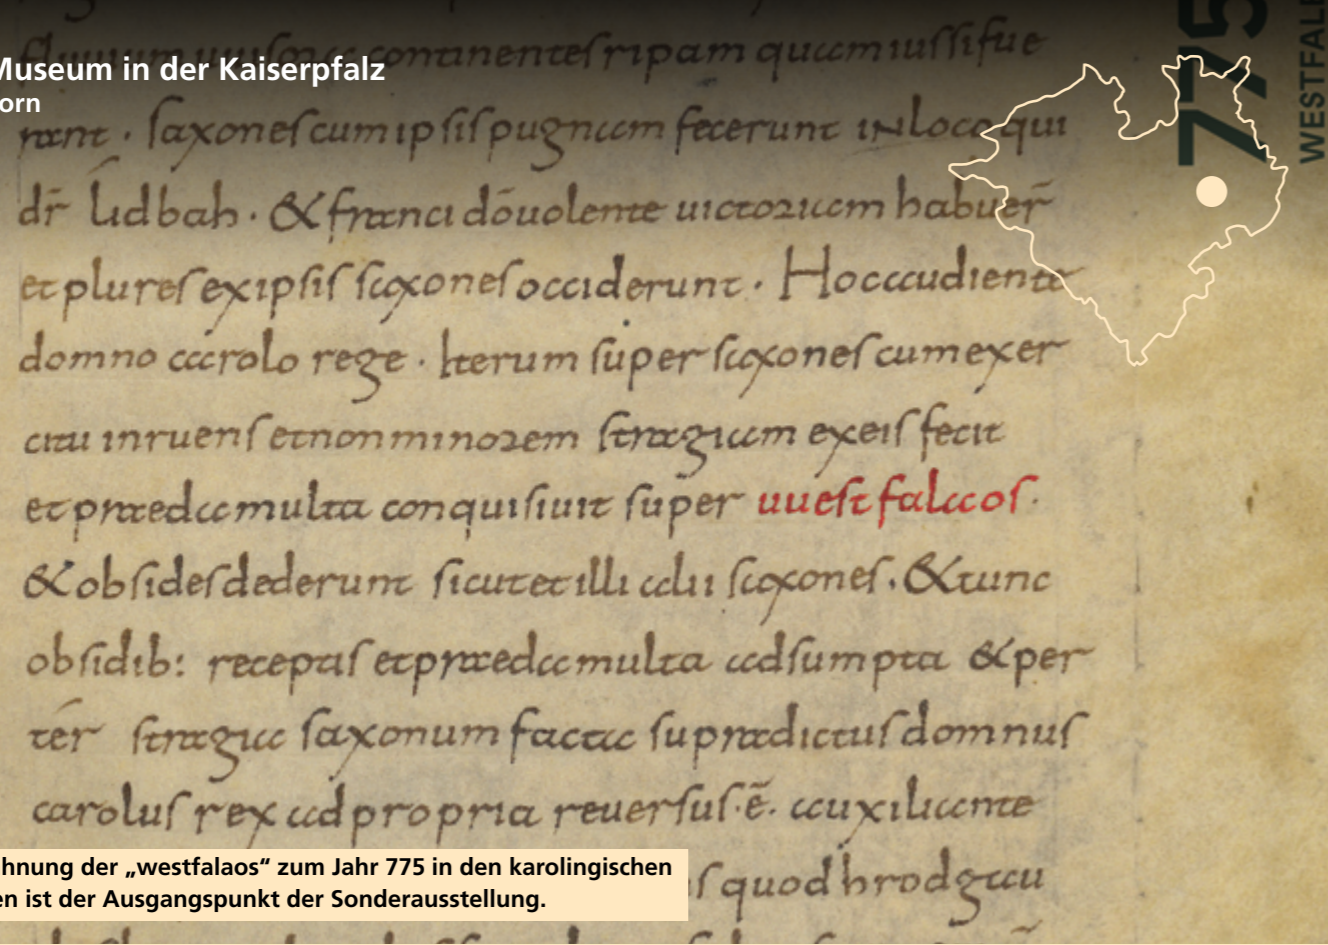 fluuium uuisora continentes ripam quam iussi fue
Museum in der Kaiserpfalz
orn
rant · saxones cum ipsis pugnam fecerunt in loco qui
dr̄ lidbah · & franci dō uolente uictoriam habuer̄
et plures ex ipsis saxones occiderunt · Hoc audiente
domno carolo rege · Iterum super saxones cum exer
citu inruens et non minorem stragiam ex eis fecit
et praeda multa conquisiuit super uuestfalaos ·
& obsides dederunt sicut et illi alii saxones · & tunc
obsidib: receptis et praeda multa adsumpta & per
ter stragia saxonum facta supradictus domnus
carolus rex ad propria reuersus · ē · auxiliante
hnung der „westfalaos“ zum Jahr 775 in den karolingischen
en ist der Ausgangspunkt der Sonderausstellung.
s quod hrodgau
775
WESTFALE